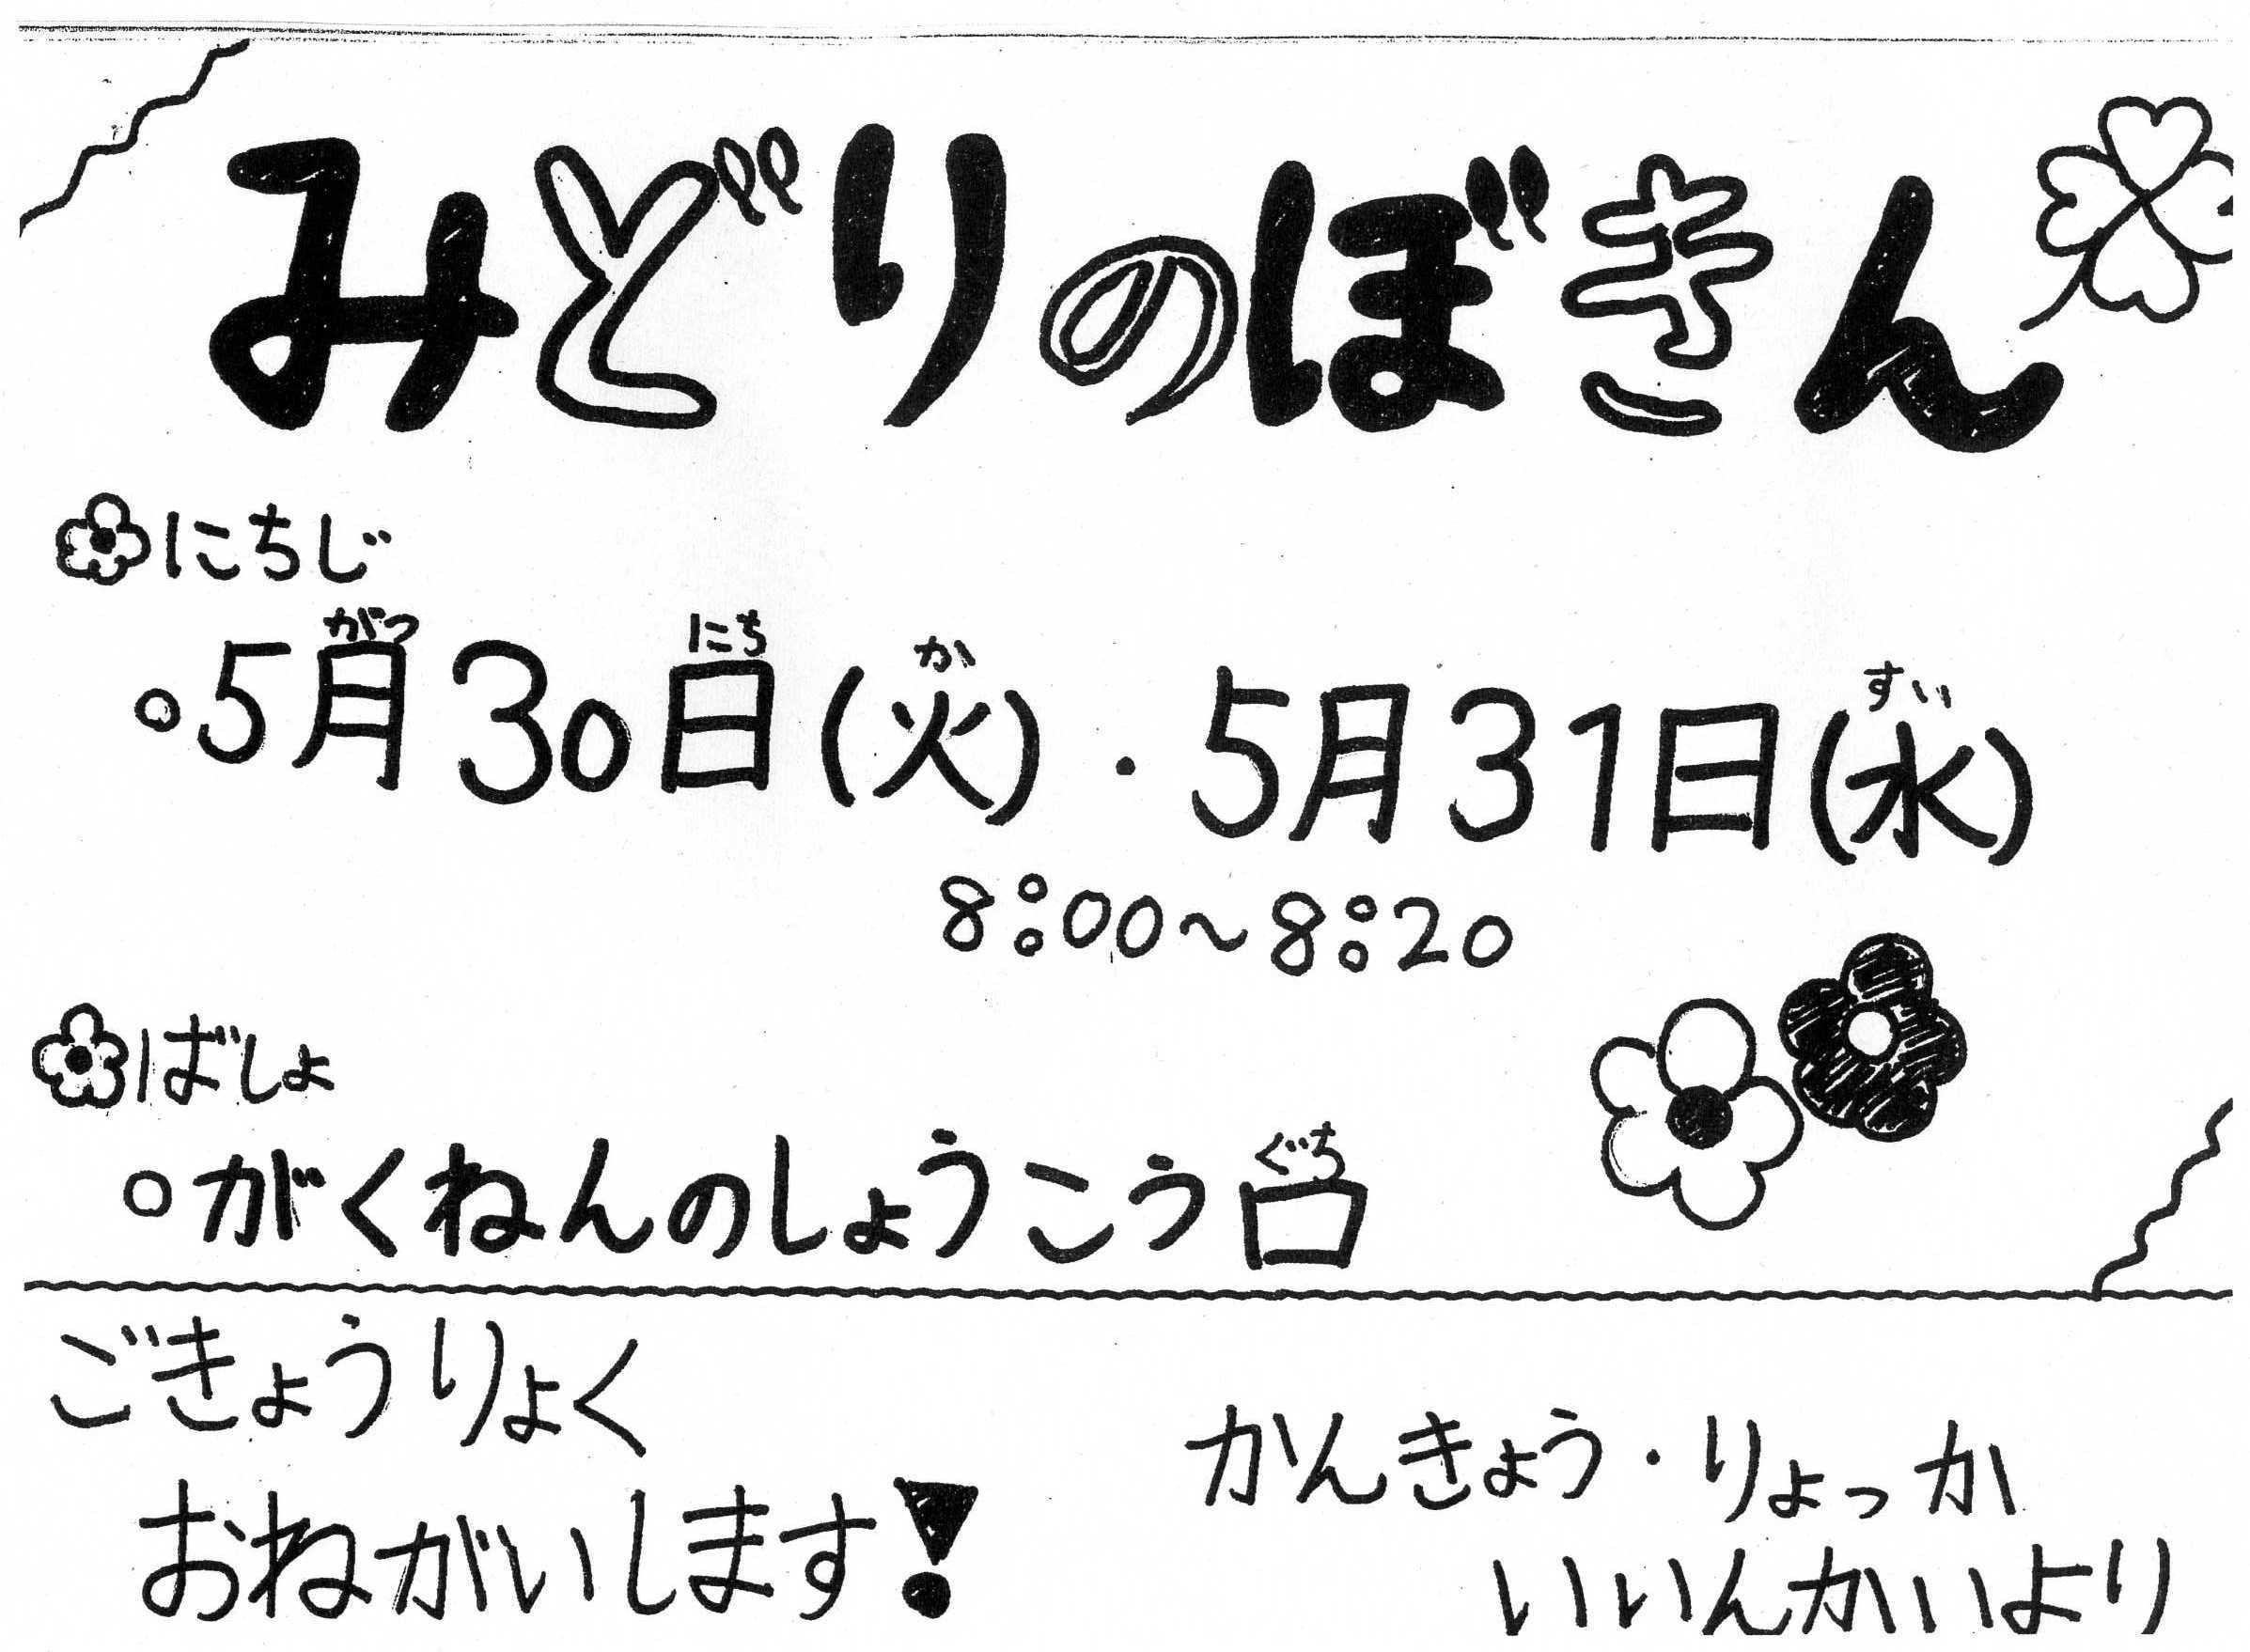 みどりのぼきん
にちじ
がつ にち か すい
○5月30日(火)・5月31日(水)
8:00~8:20
ばしょ
ぐち
○がくねんのしょうこう口
ごきょうりょく
おねがいします!
かんきょう・りょっか
いいんかいより